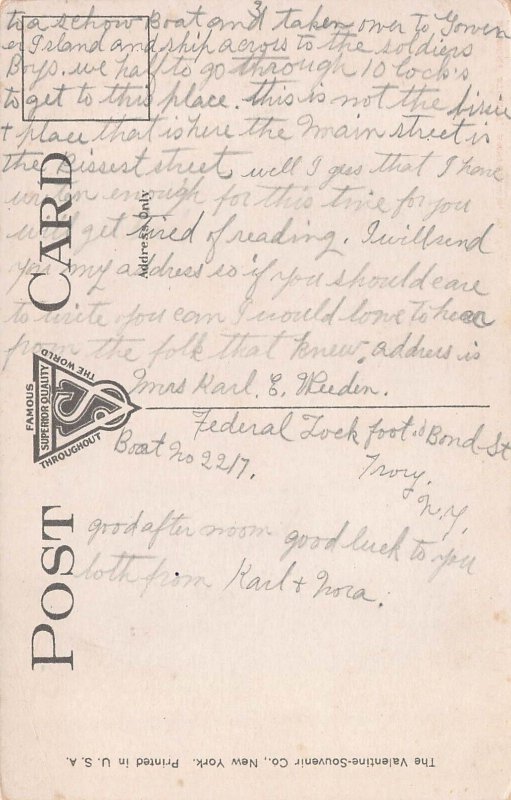 3
to a schow Boat and taken over to Gowen
er Island and ship across to the soldiers
Boys. we half to go through 10 lock's
to get to this place. this is not the
+ place that is here the main street is
the Bissest street well I gess that I have
writen enough for this time for you
will get tired of reading. I will send
you my address so if you should care
to write you can I would love to hear
from the folk that knew. address is
Mrs Karl. E. Weeden.
Federal Lock foot of Bond St
Boat No 2217.
Troy.
N.Y.
good after noom good luck to you
both from Karl + Nora.
POST CARD
Address Only
FAMOUS
THROUGHOUT
THE WORLD
SUPERIOR QUALITY
The Valentine-Souvenir Co., New York. Printed in U. S. A.